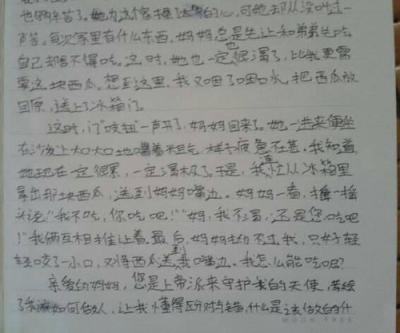 也够辛苦了。她为这个家操碎的心,可她却从没叫过一
声苦。每次家里有什么东西,妈妈总是先让和弟弟先吃,
自己却舍不得吃。这时,她也一定很渴了,比我更需
要这块西瓜。想到这里,我又咽了咽口水,把西瓜放
回原,送上了冰箱门。
这时,门“吱扭”一声开了,妈妈回来了。她一进来便坐
在沙发上大口大口地喘着粗气,样子疲惫不甚。我知道
她现在一定很累,一定渴极了。于是,我赶从冰箱里
拿出那块西瓜,送到妈妈嘴边。妈妈一看,摇一摇
头说“我不吃,你吃吧!”“妈,我不渴,还是您吃吧
!”我俩互相推让着。最后,妈妈拗不过我,只好轻
轻咬了一小口,又将西瓜送到我嘴边。我怎么能吃呢?
亲爱的妈妈,您是上帝派来守护我的天使,
了我如何做人,让我懂得区分对与错,什么是该做的什